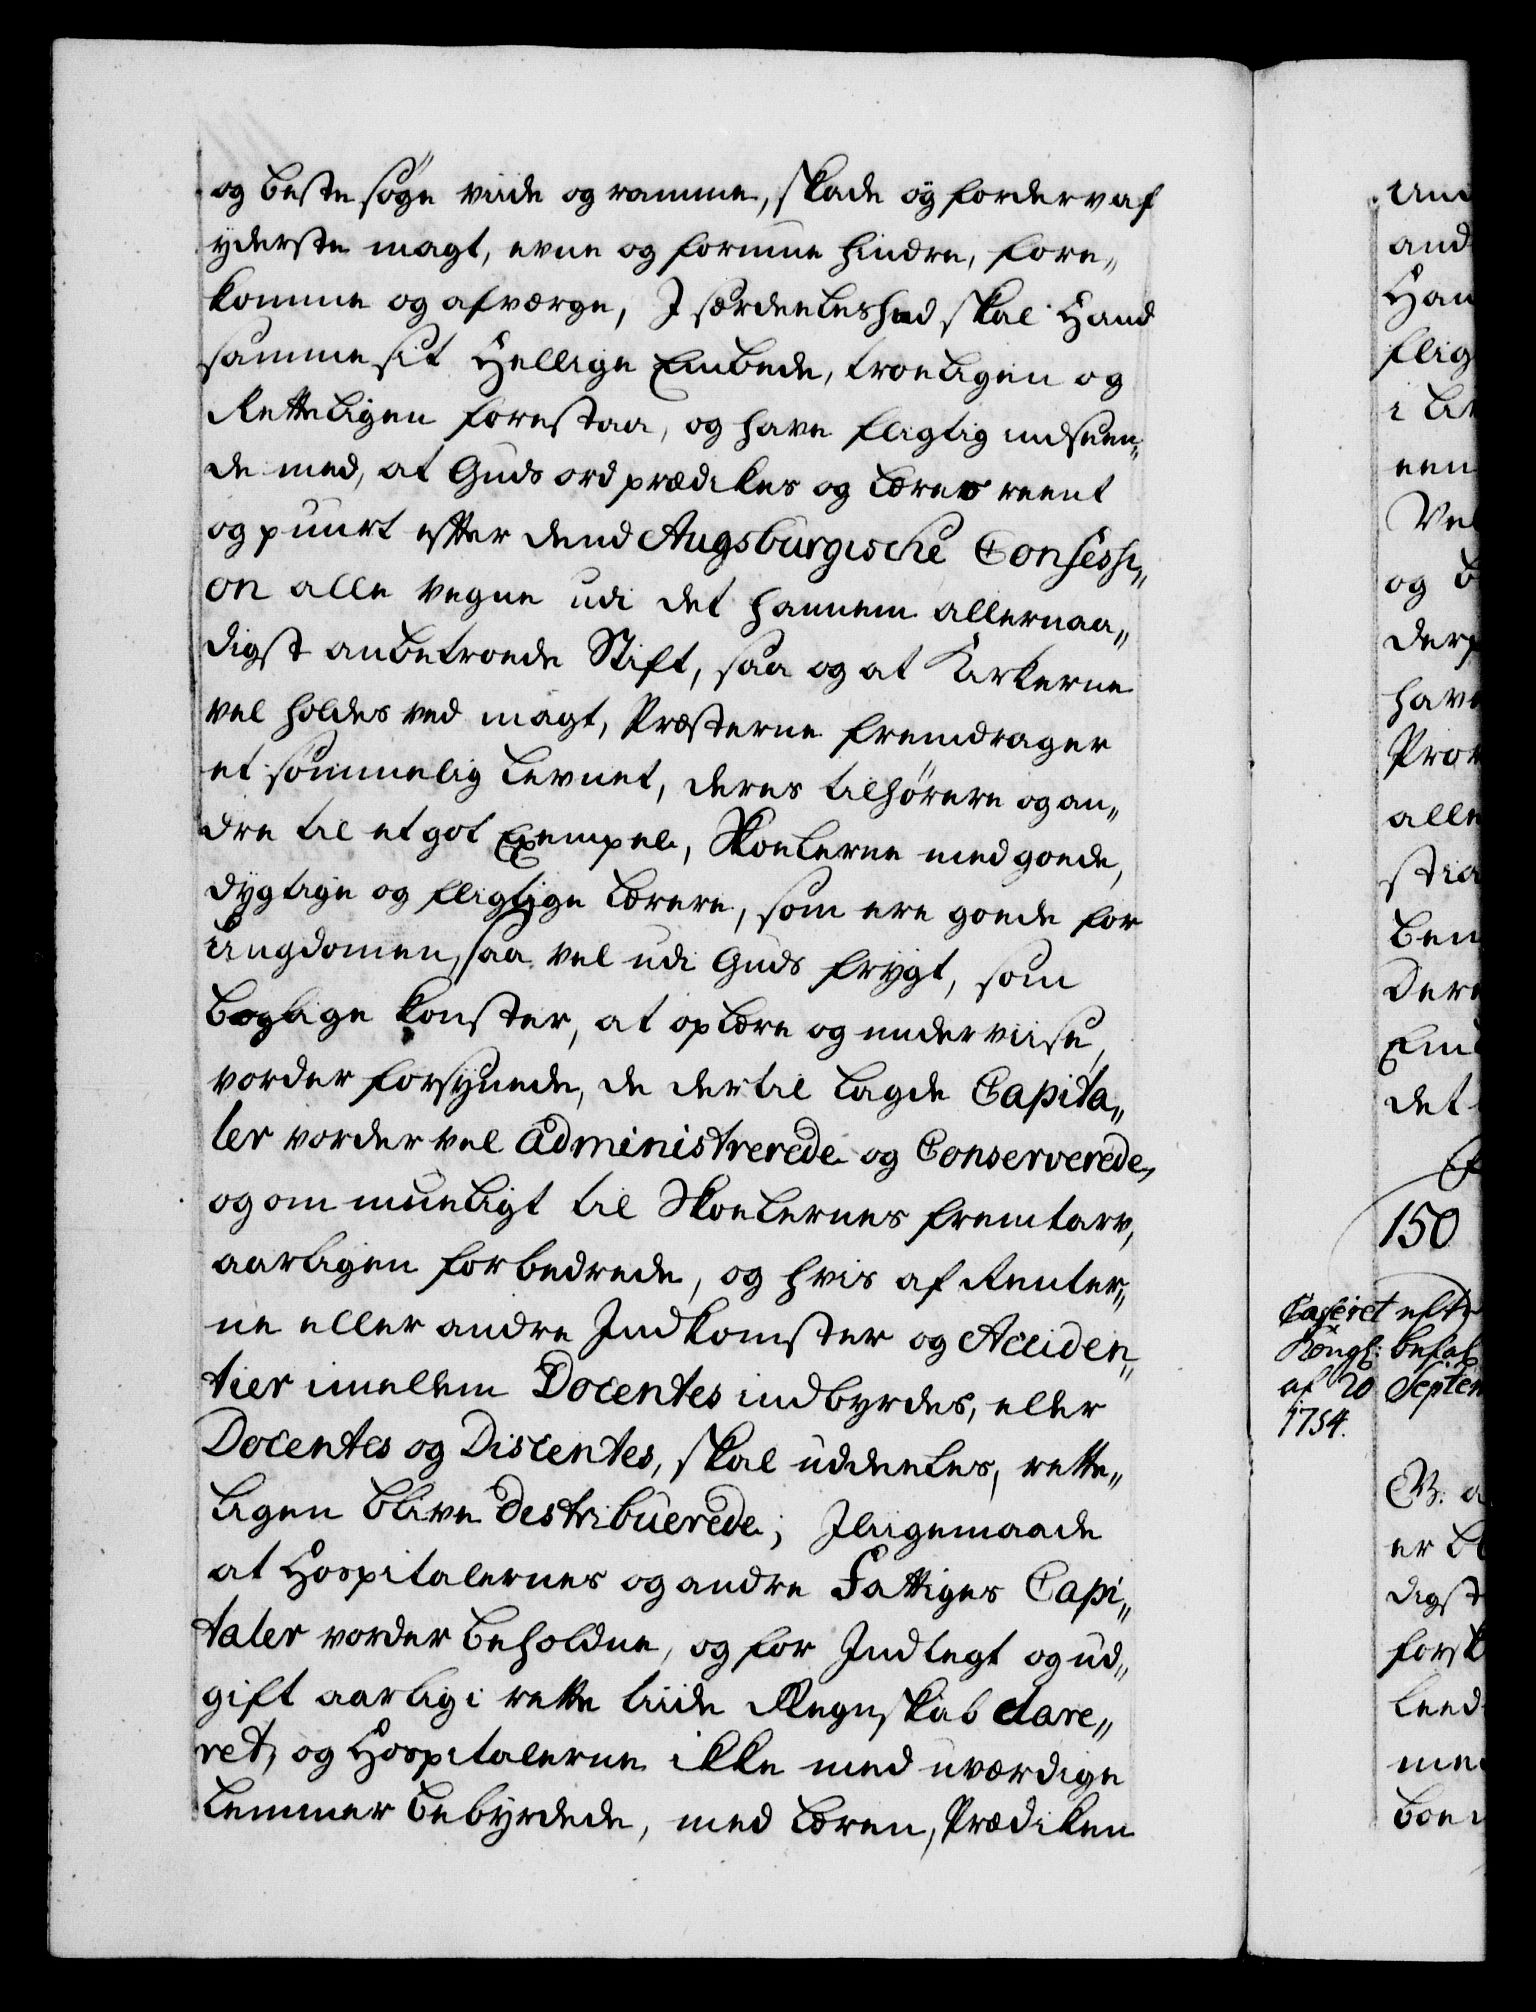 og beste søge viide og ramme, skade og forderv af
yderste magt, evne og formue hindre, fore„
komme og afværge, I særdeeleshed skal Hand
samme sit Hellige Embede, troeligen og
Retteligen forestaa, og have fligtig indseen„
de med, at Guds ord prædikes og læres reent
og puurt effter dend Augsburgische Confessi„
on alle vegne udi det hannem allernaa„
digst anbetroede Stift, saa og at Kirkerne
vel holdes ved magt, Præsterne fremdrager
et sømmelig levnet, deres tilhørere og an„
dre til et got Exempel, Skoelerne med goede,
dygtige og fligtige lærere, som ere goede for
Ungdomen, saa vel udi Guds frygt, som
boglige konster, at oplære og underviise,
vorder forsynede, de dertil lagde Capita„
ler vorder vel administrerede og Conserverede,
og om mueligt til Skoelernes fremtarv,
aarligen forbedrede, og hvis af Renter„
ne eller andre Indkomster og Acciden„
tier imellem Docentes indbyrdes, eller
Docentes og Discentes, skal uddeeles, rette„
ligen blive destribuerede; Iligemaade
at Hospitalernes og andre Fattiges Capi„
taler vorder beholdne, og for Indtegt og ud„
gift aarlig i rette tiide Regnskab clare„
ret, og Hospitalerne ikke med uværdige
Lemmer bebyrdede, med læren, Prædiken
150
Casseret efter
Kongl: befal
af 20 Septem
1754.